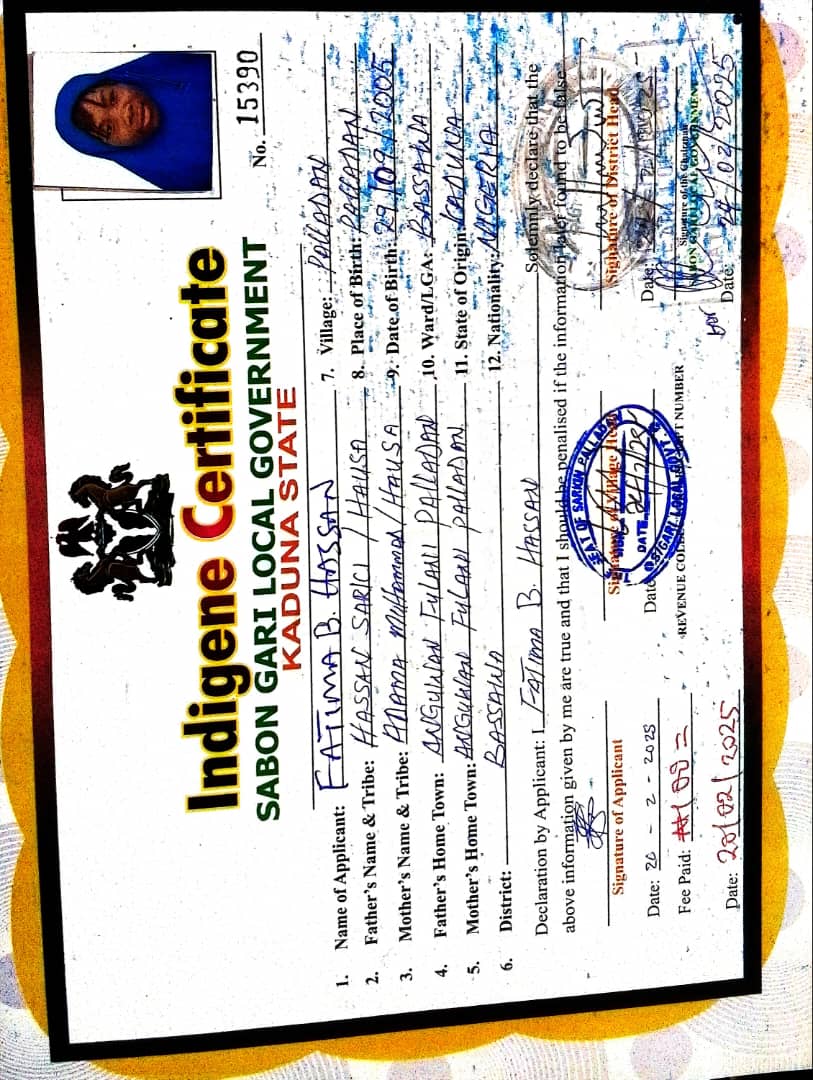 No. 15390
Indigene Certificate
SABON GARI LOCAL GOVERNMENT
KADUNA STATE
1. Name of Applicant: FATIMA B. HASSAN 7. Village: PALLADAN
2. Father's Name & Tribe: HASSAN SARICI / HAUSA 8. Place of Birth: PALLADAN
3. Mother's Name & Tribe: Muhammad / HAUSA 9. Date of Birth: 29/09/2005
4. Father's Home Town: ANGUWAN FULANI PALLADAN 10. Ward/LGA: BASSAWA
5. Mother's Home Town: ANGUWAN FULANI PALLADAN 11. State of Origin: KADUNA
6. District: BASSAWA 12. Nationality: NIGERIA
Declaration by Applicant: I FATIMA B. HASSAN Solemnly declare that the
above information given by me are true and that I should be penalised if the information later found to be false
Signature of Applicant Signature of Village Head Signature of District Head
SEAT OF SARKIN PALLADAN
DATE
S/GARI LOCAL GOVT.
Date: 20 - 2 - 2025 Date: Date:
Fee Paid: REVENUE NUMBER Signature of the Chairman
SABON GARI LOCAL GOVERNMENT
Date: 20/02/2025 for Date: 24/02/2025